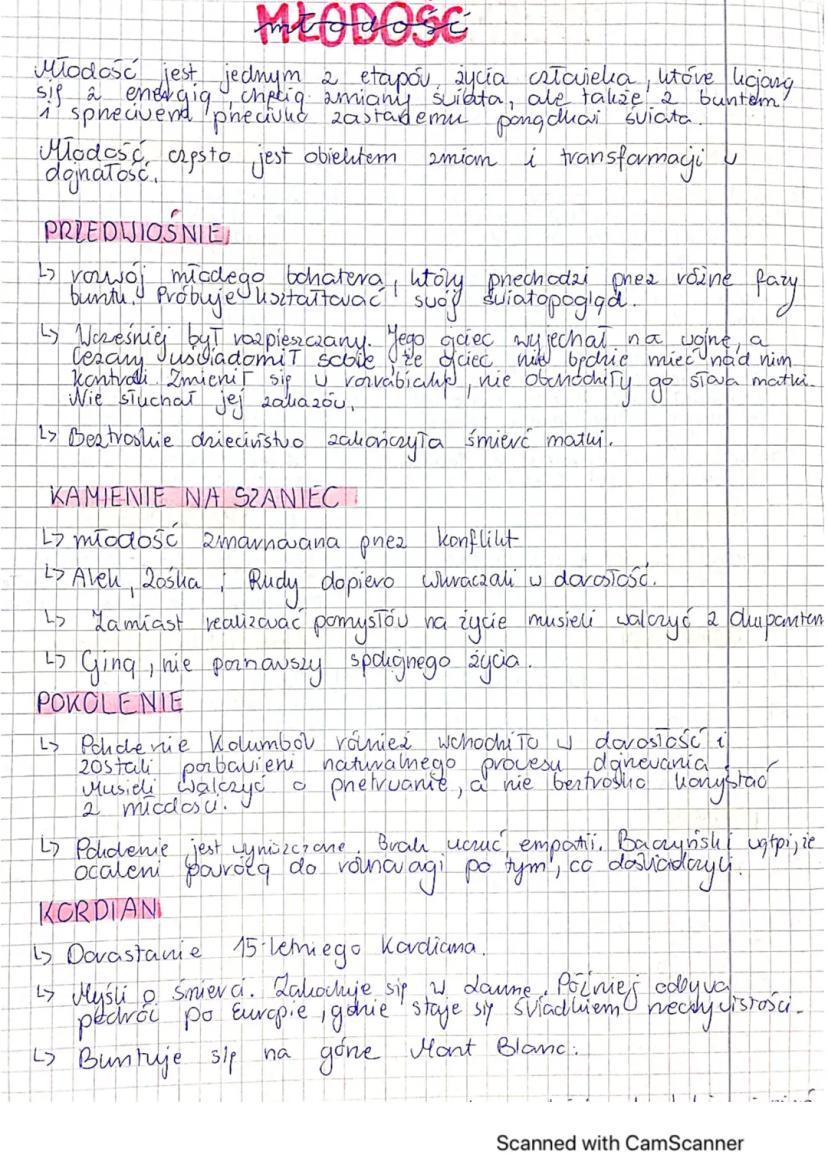 MŁODOŚĆ
młodość
Młodość jest jednym z etapów życia człowieka, które kojarzą
się z energią, chęcią zmiany świata, ale także z buntem
i sprzeciwem przeciwko zastanemu porządkowi świata.
Młodość często jest obiektem zmian i transformacji w
dojrzałość.
PRZEDWIOŚNIE
↳ rozwój młodego bohatera, który przechodzi przez różne fazy
buntu. Próbuje kształtować swój światopogląd.
↳ Wcześniej był rozpieszczany. Jego ojciec wyjechał na wojnę, a
Cezary uświadomił sobie że ojciec nie będzie mieć nad nim
kontroli. Zmienił się w rozrabiakę, nie obchodziły go słowa matki.
Nie słuchał jej zakazów.
↳ Beztroskie dzieciństwo zakończyła śmierć matki.
KAMIENIE NA SZANIEC
↳ młodość zmarnowana przez konflikt
↳ Alek, Zośka i Rudy dopiero wkraczali w dorosłość.
↳ Zamiast realizować pomysłów na życie musieli walczyć z okupantem
↳ Giną, nie poznawszy spokojnego życia.
POKOLENIE
↳ Pokolenie Kolumbów również wchodziło w dorosłość i
zostali pozbawieni naturalnego procesu dojrzewania
Musieli walczyć o przetrwanie, a nie beztrosko korzystać
z młodości.
↳ Pokolenie jest wyniszczone. Brak uczuć, empatii. Baczyński wątpi, że
ocaleni powrócą do równowagi po tym, co doświadczyli.
KORDIAN
↳ Dorastanie 15-letniego Kordiana.
↳ Myśli o śmierci. Zakochuje się w damie. Później odbywa
podróż po Europie, gdzie staje się świadkiem rzeczywistości.
↳ Buntuje się na górze Mont Blanc.
Scanned with CamScanner